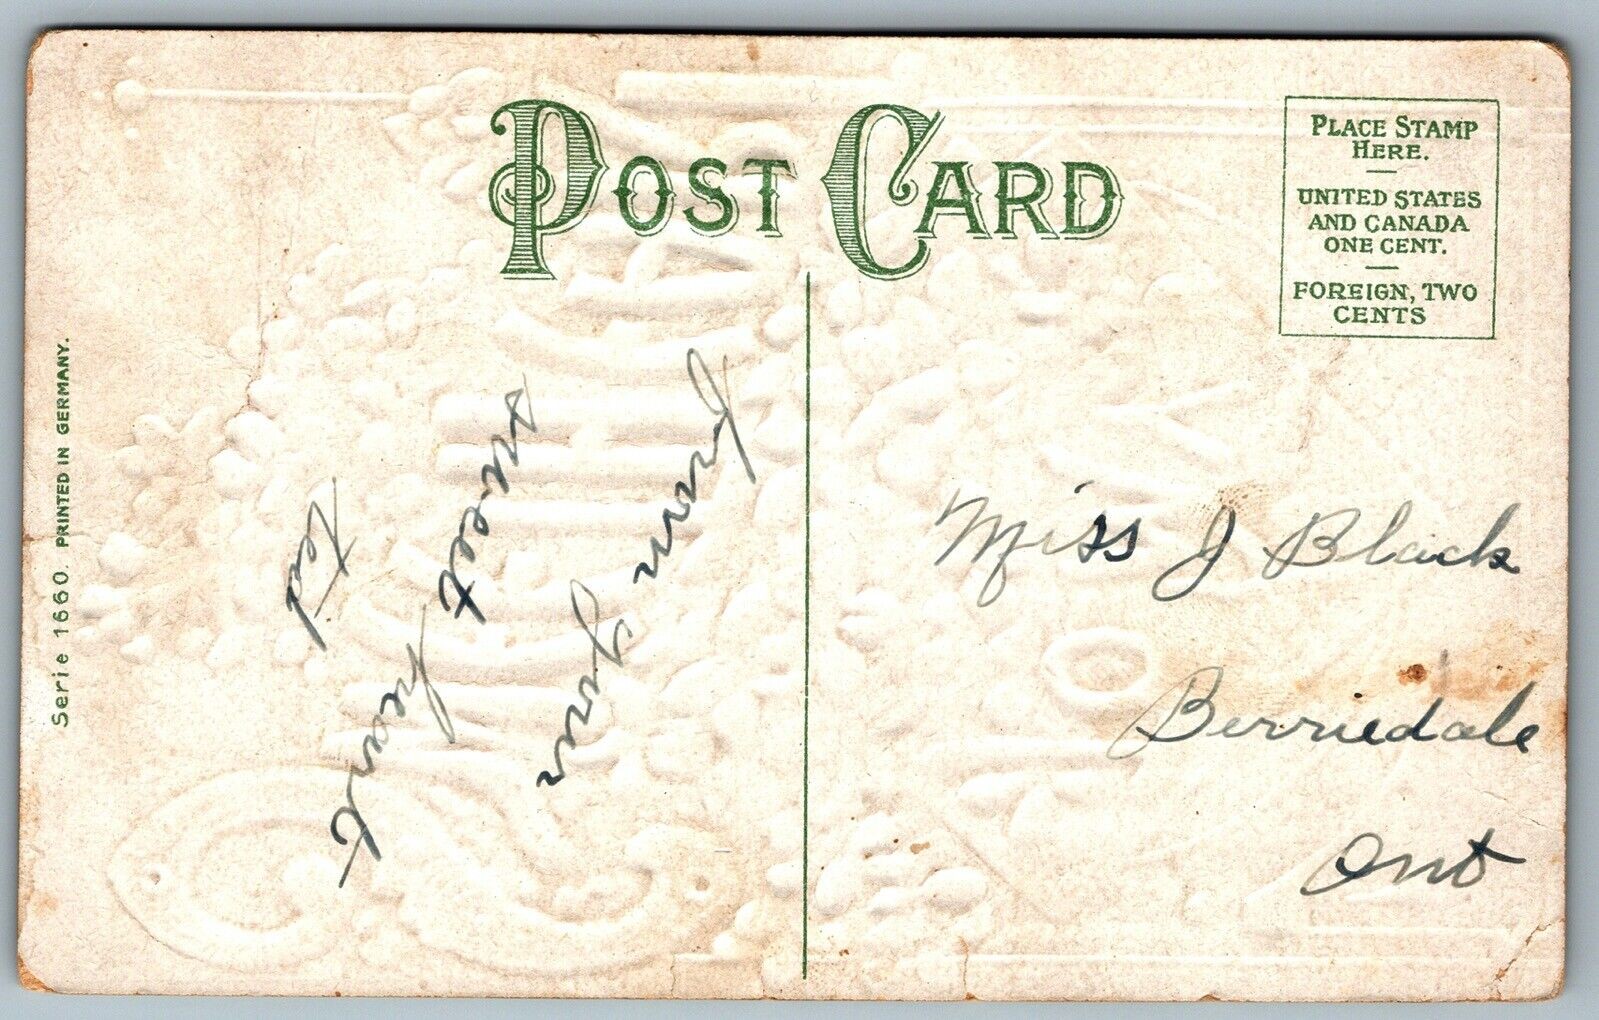 POST CARD
PLACE STAMP
HERE.
UNITED STATES
AND CANADA
ONE CENT.
FOREIGN, TWO
CENTS
Serie 1660. PRINTED IN GERMANY.
from your
sweet heart
Ted
Miss J Black
Berriedale
Ont